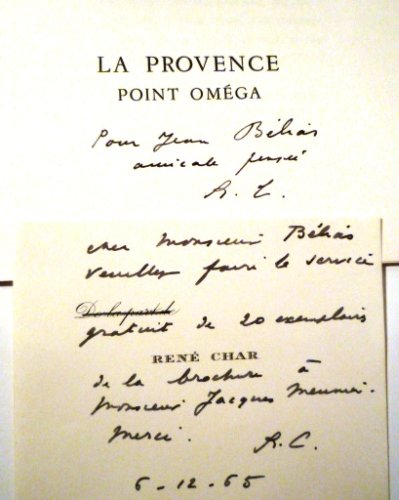 LA PROVENCE
POINT OMÉGA
Pour Jean Bélias
amicale pensée
R. C.
cher Monsieur Bélias
veuillez faire le service
De la part de
gratuit de 20 exemplaires
RENÉ CHAR
de la brochure à
Monsieur Jacques Meunier.
Merci.
R. C.
6-12-65